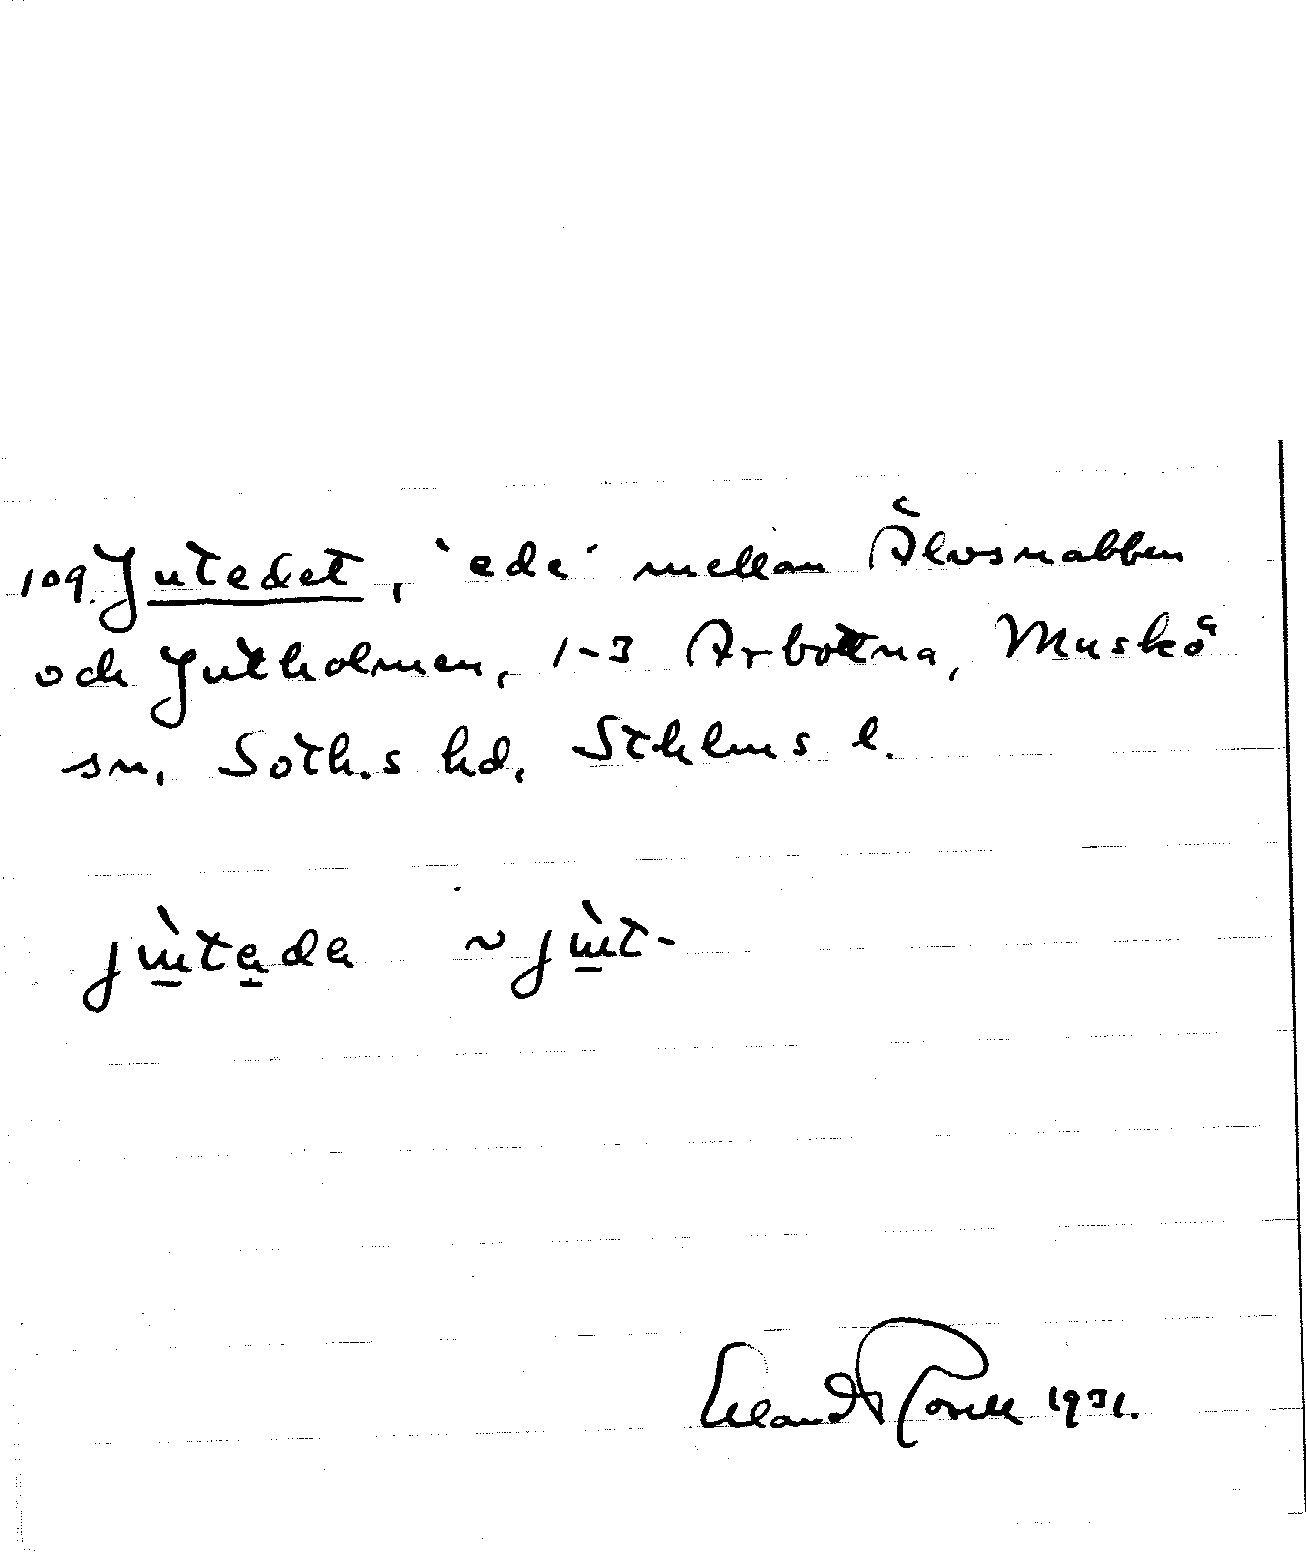 109. Jutedet, 'ede' mellan Älvsnabben
och Jutholmen, 1-3 Arbottna, Muskö
sn, Soth.s hd, Sthlms l.
jùtada ~ jùt-
Erland Rosell 1931.